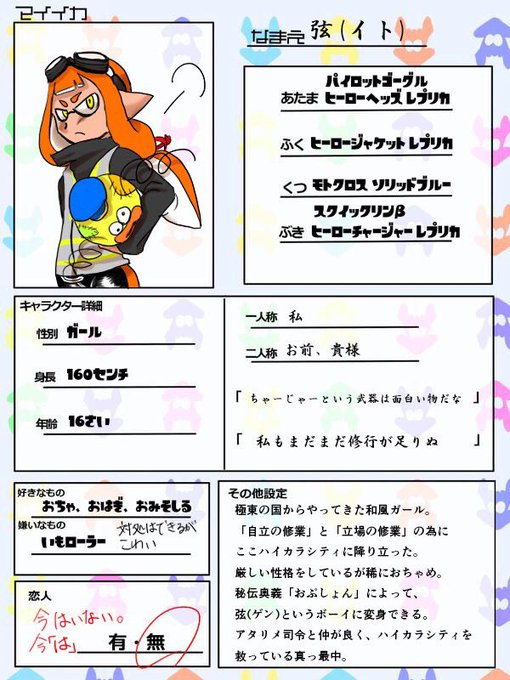 マイイカ
なまえ 弦(イト)
パイロットゴーグル
あたま ヒーローヘッズ レプリカ
ふく ヒーロージャケット レプリカ
くつ モトクロス ソリッドブルー
スクイックリンβ
ぶき ヒーローチャージャー レプリカ
キャラクター詳細
性別 ガール
身長 160センチ
年齢 16さい
一人称 私
二人称 お前、貴様
「 ちゃーじゃーという武器は面白い物だな 」
「 私もまだまだ修行が足りぬ 」
好きなもの
おちゃ、おはぎ、おみそしる
嫌いなもの
対処はできるが
こわい
いもローラー
恋人
今はいない。
今「は」
有・無
その他設定
極東の国からやってきた和風ガール。
「自立の修業」と「立場の修業」の為に
ここハイカラシティに降り立った。
厳しい性格をしているが稀におちゃめ。
秘伝奥義「おぷしょん」によって、
弦(ゲン)というボーイに変身できる。
アタリメ司令と仲が良く、ハイカラシティを
救っている真っ最中。